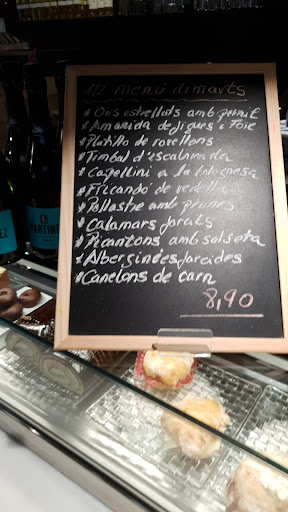 1/2 menú dimarts
* Ous estrellats amb pernil
* Amanida de figues i Foie
* Platillo de rovellons
* Timbal d'escalivada
* Capellini a la bolonyesa
* Fricandó de vedella
* Pollastre amb prunes
* Calamars farcits
* Picantons amb salsota
* Albersinies farcides
* Canelons de carn
8,90